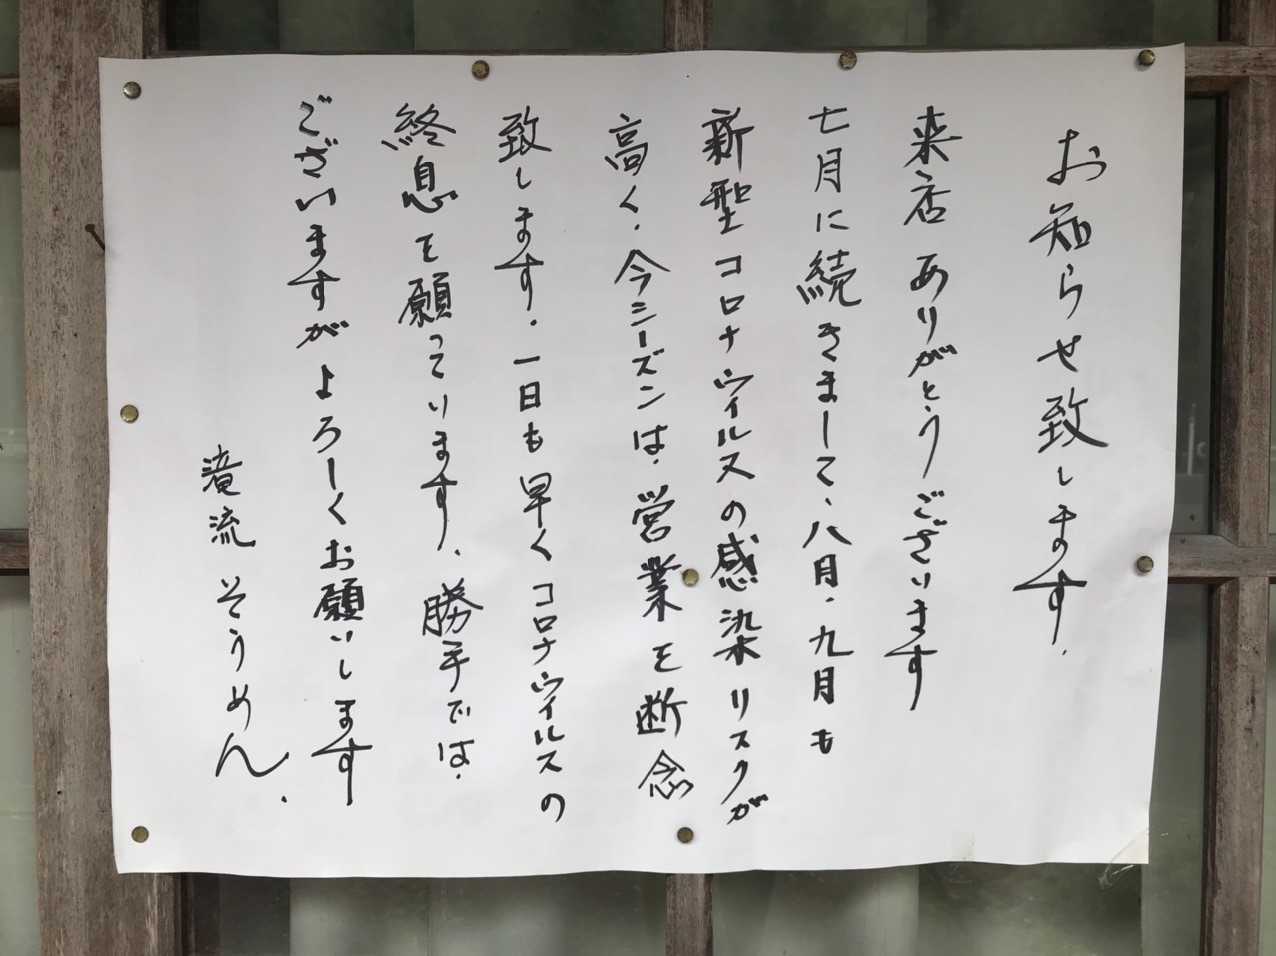 お知らせ致します.
来店ありがとうございます
七月に続きまして、八月.九月も
新型コロナウイルスの感染リスクが
高く.今シーズンは.営業を断念
致します.一日も早くコロナウイルスの
終息を願っています、勝手では.
ございますがよろしくお願いします
滝流そうめん.